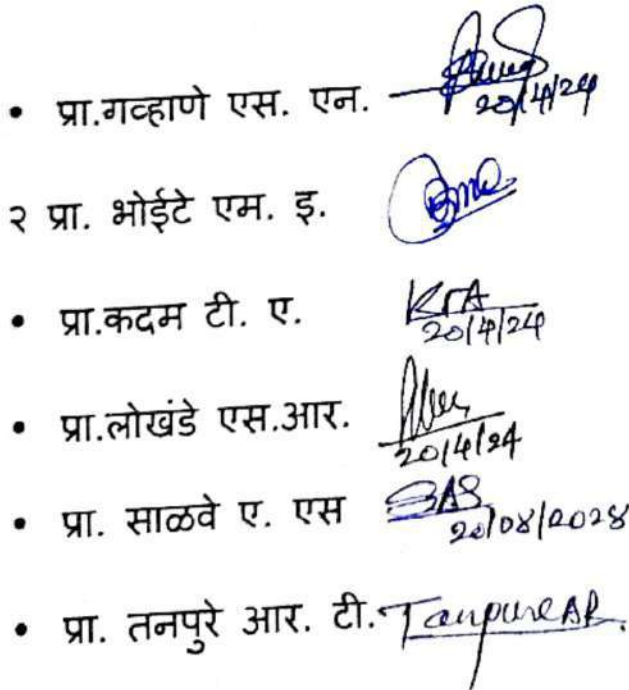 • प्रा.गव्हाणे एस. एन.
20/4/24
२ प्रा. भोईटे एम. इ.
• प्रा.कदम टी. ए. KTA
20/4/24
• प्रा.लोखंडे एस.आर.
20/4/24
• प्रा. साळवे ए. एस SAS
20/०४/२०२४
• प्रा. तनपुरे आर. टी. Tanpure AR.